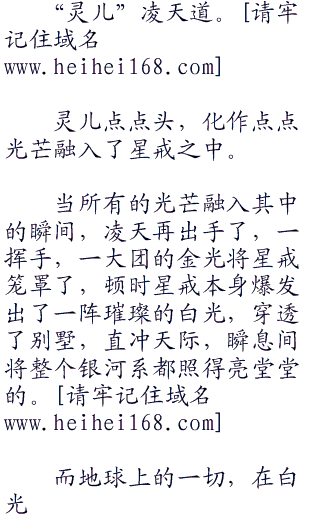 “灵儿”凌天道。[请牢
记住域名
www.heihei168.com]
灵儿点点头，化作点点
光芒融入了星戒之中。
当所有的光芒融入其中
的瞬间，凌天再出手了，一
挥手，一大团的金光将星戒
笼罩了，顿时星戒本身爆发
出了一阵璀璨的白光，穿透
了别墅，直冲天际，瞬息间
将整个银河系都照得亮堂堂
的。[请牢记住域名
www.heihei168.com]
而地球上的一切，在白
光